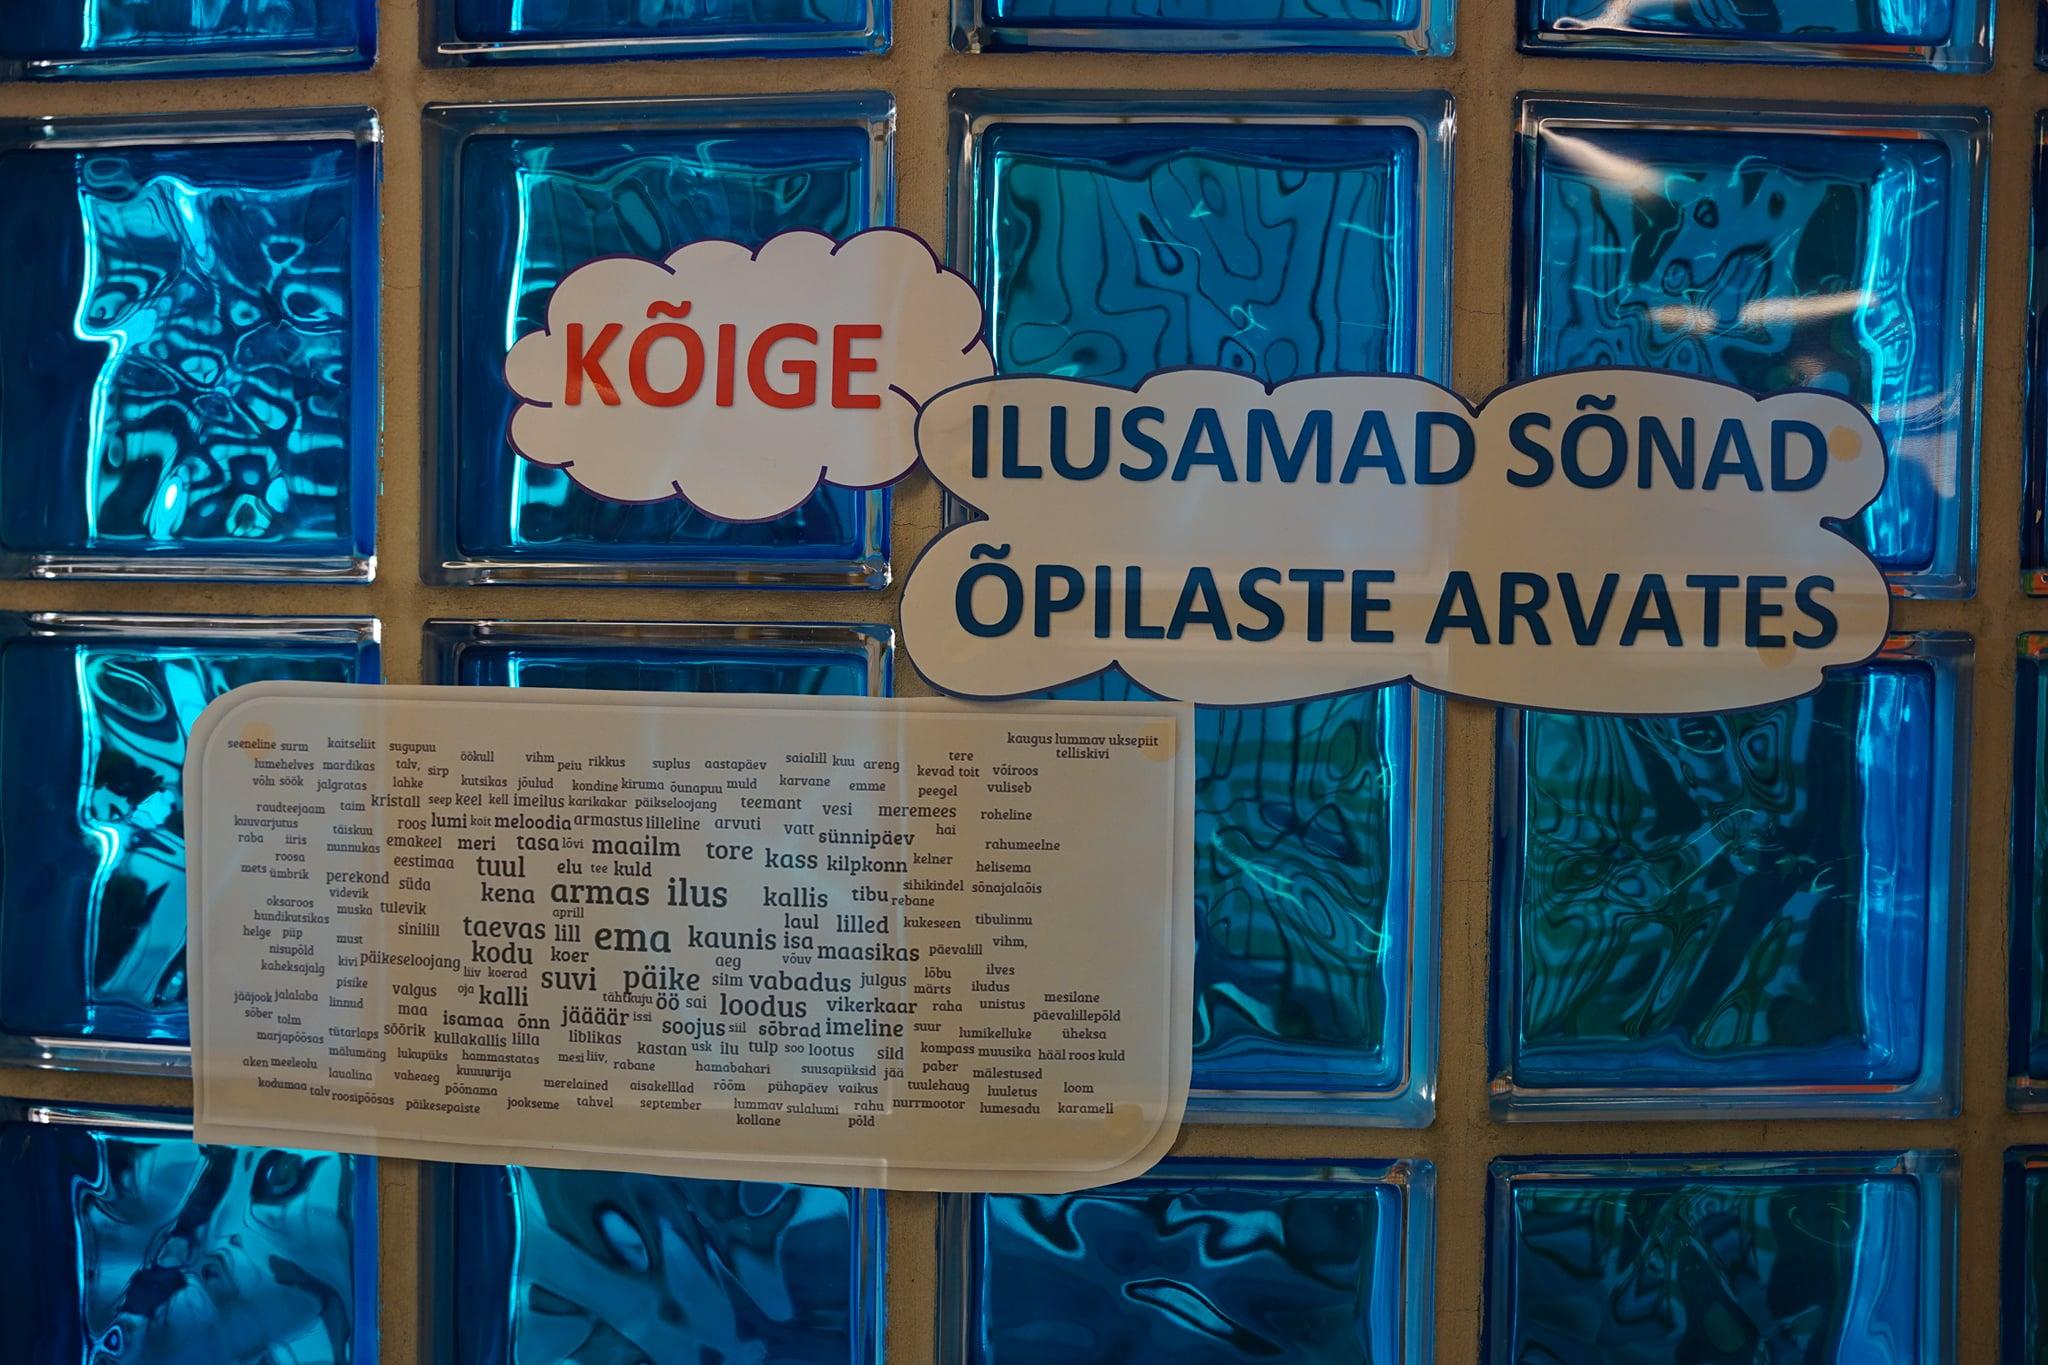 KÕIGE
ILUSAMAD SÕNAD
ÕPILASTE ARVATES
seeneline surm kaitseliit sugupuu öökull vihm peiu rikkus suplus aastapäev saialill kuu areng tere kaugus lummav uksepiit
telliskivi
lumehelves mardikas talv, sirp kevad toit võiroos
võlu söök jalgratas lahke kutsikas jõulud kondine kiruma õunapuu muld karvane emme peegel vuliseb
raudteejaam taim kristall seep keel kell imeilus karikakar päikseloojang teemant vesi meremees roheline
kuuvarjutus täiskuu roos lumi koit meloodia armastus lilleline arvuti vatt sünnipäev hai
raba iiris nunnukas emakeel meri tasa lõvi maailm tore kass kilpkonn kelner rahumeelne
roosa eestimaa tuul elu tee kuld helisema
mets ümbrik perekond süda kena armas ilus kallis tibu rebane sihikindel sõnajalaõis
videvik
oksaroos muska tulevik aprill laul lilled kukeseen tibulinnu
hundikutsikas sinilill taevas lill ema kaunis isa maasikas päevalill vihm,
helge piip must
nisupõld kodu koer aeg võuv
kaheksajalg kivi päikeseloojang liiv koerad suvi päike silm vabadus julgus lõbu ilves
pisike märts iludus
jääjook jalalaba linnud valgus oja kalli tähtkuju öö sai loodus vikerkaar raha unistus mesilane
sõber tolm maa isamaa õnn jäääär issi päevalillepõld
marjapõõsas tütarlaps sõõrik kullakallis lilla liblikas soojus siil sõbrad imeline suur lumikelluke üheksa
mälumäng lukupüks hammastatas mesi liiv, kastan usk ilu tulp soo lootus sild kompass muusika hääl roos kuld
aken meeleolu laualina vaheaeg kuuuurija rabane hamabahari suusapüksid jää paber mälestused
kodumaa talv põõnama merelained aisakelllad rõõm pühapäev vaikus tuulehaug luuletus loom
roosipõõsas päikesepaiste jookseme tahvel september lummav sulalumi rahu nurrmootor lumesadu karamell
kollane põld